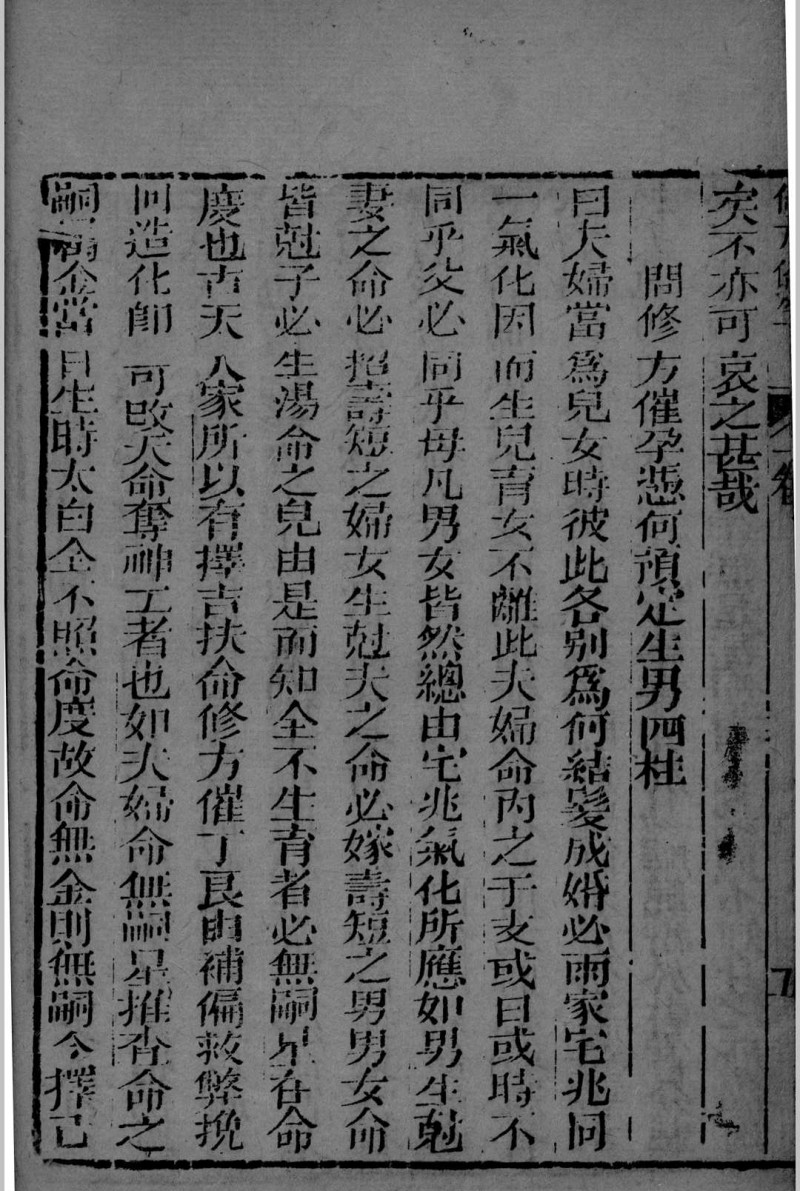 矣不亦可哀之甚哉
問修方催孕憑何預定生男四柱
曰夫婦當爲兒女時彼此各别爲何結髮成婚必兩家宅兆同
一氣化因而生兒育女不離此夫婦命内之干支或日或時不
同乎父必同乎母凡男女皆然總由宅兆氣化所應如男生尅
妻之命必招壽短之婦女生尅夫之命必嫁壽短之男男女命
皆尅子必生湯命之兒由是而知全不生育者必無嗣星在命
慶也古天人家所以有擇吉扶命修方催丁良由補偏救弊挽
回造化即 可改天命奪神工者也如夫婦命無嗣星推查命之
嗣 金當日生時太白金不照命度故命無金則無嗣今擇已